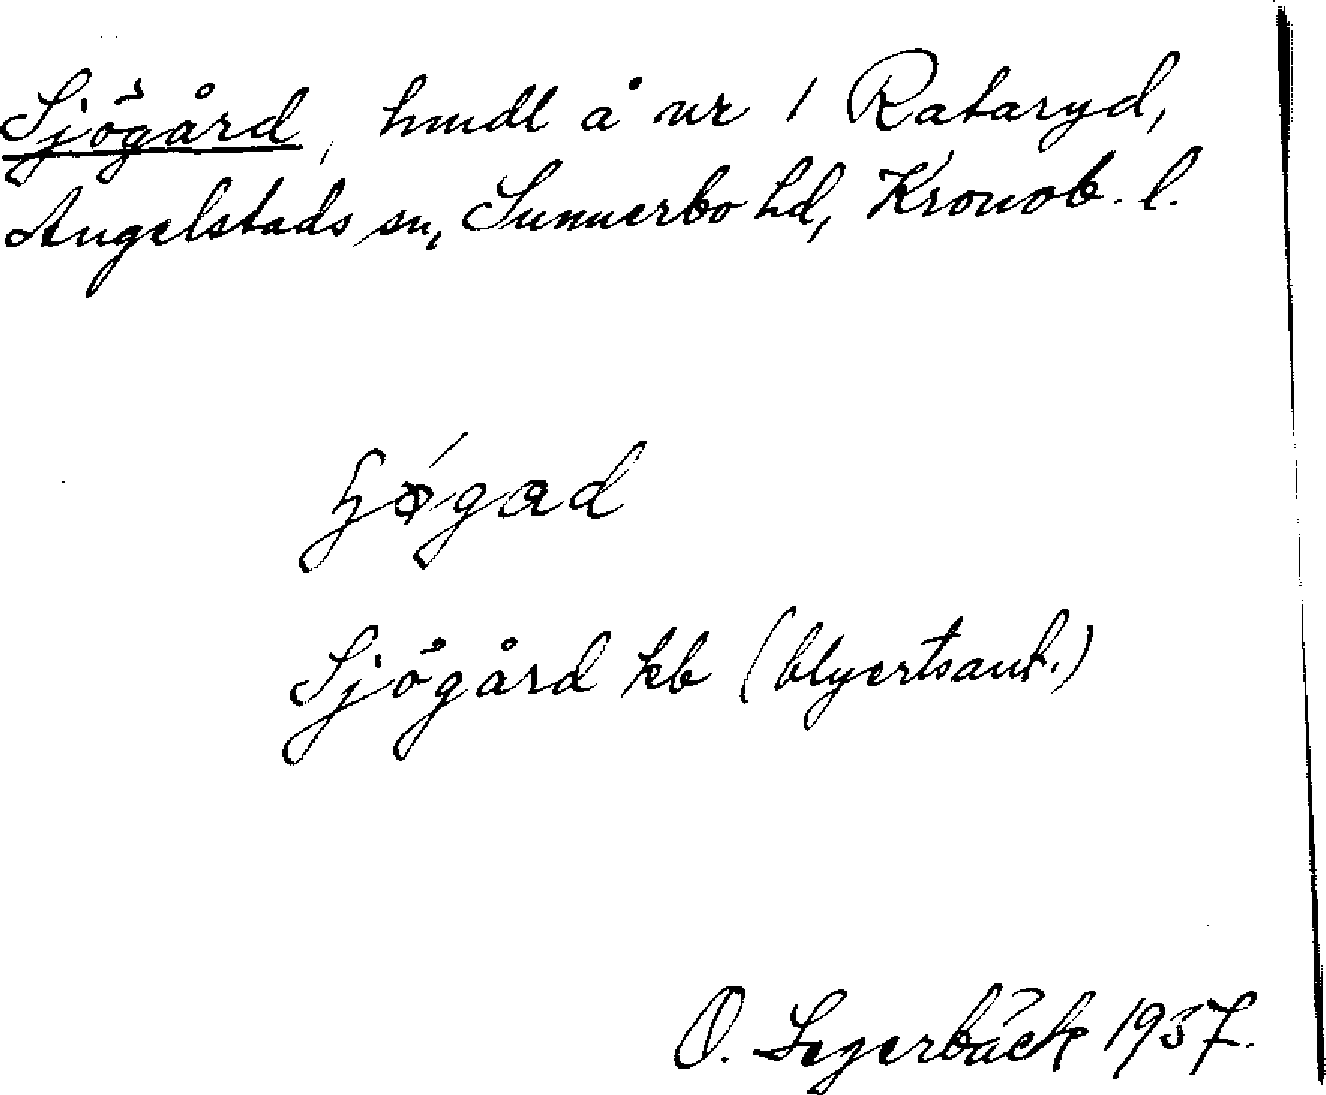 Sjögård, hmdl å nr 1 Rataryd,
Angelstads sn, Sunnerbo hd, Kronob. l.
Sjögård kb (blyertsant.)
O. Segerbäck 1937.